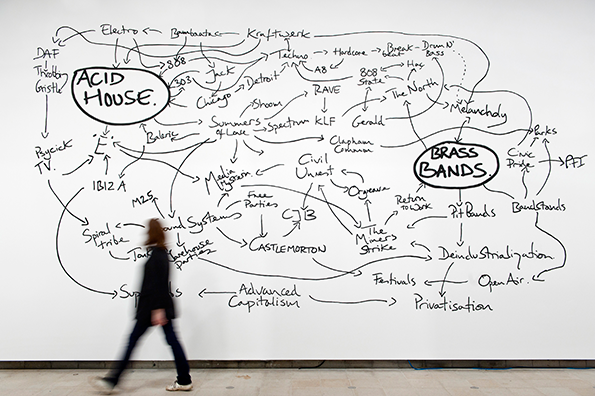 Electro
Bambaataa
Kraftwerk
DAF
Throbbing
Gristle
ACID
HOUSE.
808
303
Jack
Chicago
Detroit
Techno
Hardcore
Break
beat
Drum N'
Bass
A8
808
State
Hac
The North
Melancholy
RAVE
Shoom
Summer
of Love
Spectrum
KLF
Gerald
Clapham
Common
BRASS
BANDS.
Parks
Civic
Pride
PFI
Psychick
TV.
'E'
Balearic
IBIZA
Media
Hysteria
Civil
Unrest
Orgreave
Return
to Work
Pit Bands
Bandstands
M25
Free
Parties
CJB
Sound Systems
Spiral
tribe
Warehouse
Parties
CASTLEMORTON
The
Miners
Strike
Deindustrialization
Festivals
Open Air.
Advanced
Capitalism
Privatisation